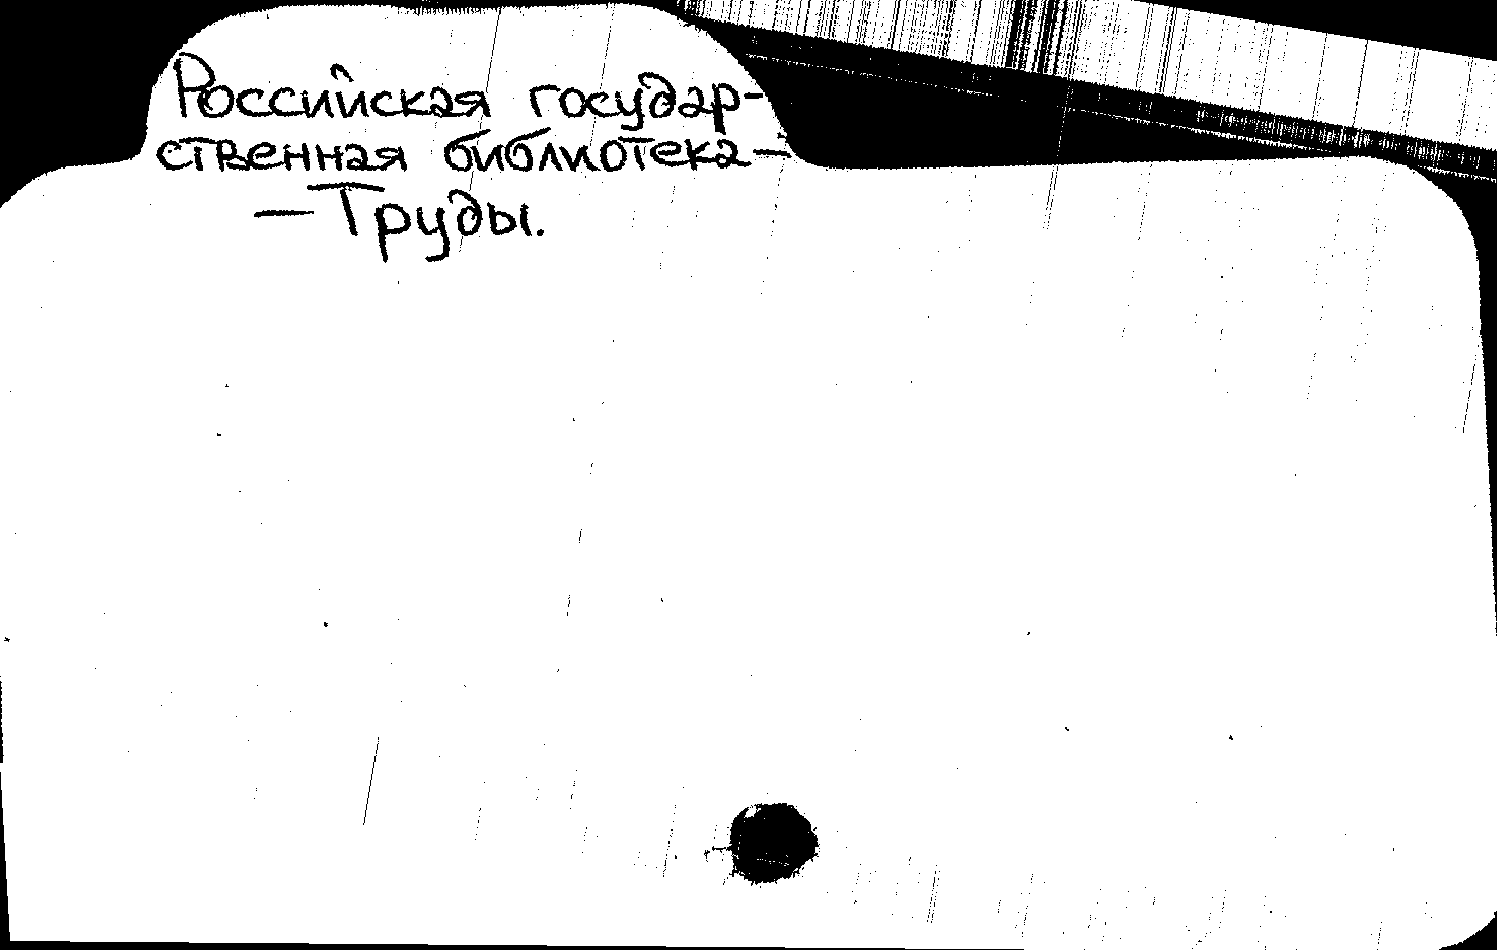 Российская государ-
ственная библиотека-
- Труды.